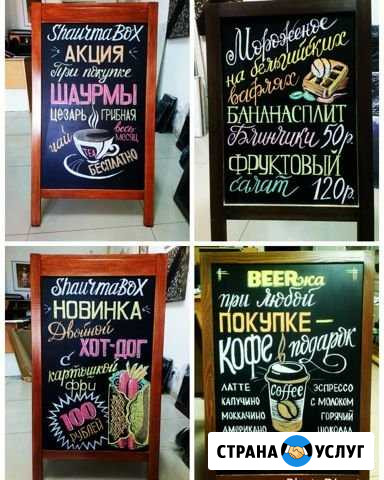 ShaurmaBOX
АКЦИЯ
При покупке
ШАУРМЫ
ЦЕЗАРЬ ГРИБНАЯ
весь
месяц
чай
TEA
БЕСПЛАТНО
Мороженое
на бельгийских
вафлях
БАНАНАСПЛИТ
Блинчики 50р.
ФРУКТОВЫЙ
салат 120р.
ShaurmaBOX
НОВИНКА
Двойной
ХОТ-ДОГ
с
картошкой
фри
100
РУБЛЕЙ
BEERжа
при любой
ПОКУПКЕ —
КОФЕ в подарок
Coffee
ЛАТТЕ
КАПУЧИНО
МОККАЧИНО
АМЕРИКАНО
ЭСПРЕССО
С МОЛОКОМ
ГОРЯЧИЙ
ШОКОЛАД
СТРАНА УСЛУГ